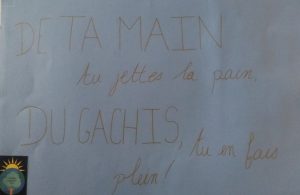 DE TA MAIN
tu jettes la pain,
DU GACHIS, tu en fais
plein !